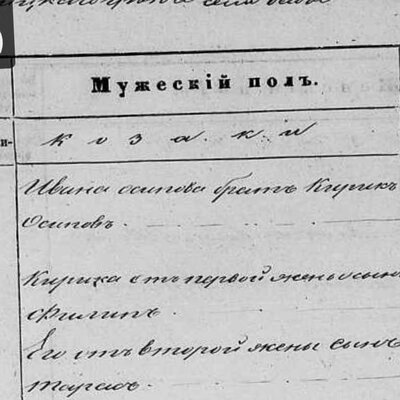 села
Мужескій полъ.
козаки
Ивана Осипова братъ Кирикъ
Осиповъ.
Кирика отъ первой жены сынъ
Филипъ.
Его отъ второй жены сынъ
Тарасъ.